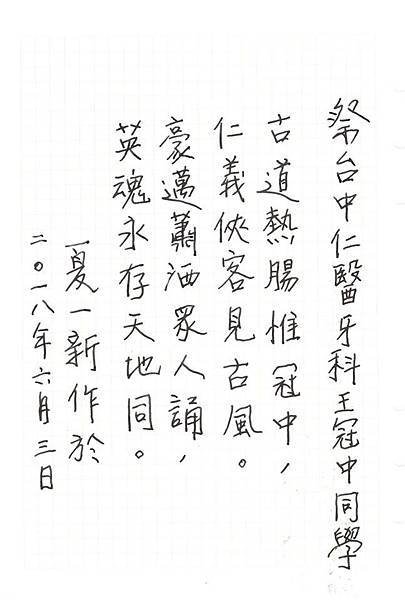 祭台中仁醫牙科王冠中同學
古道熱腸惟冠中，
仁義俠客見古風。
豪邁蕭洒眾人誦，
英魂永存天地同。
夏一新作於
二〇一八年六月三日